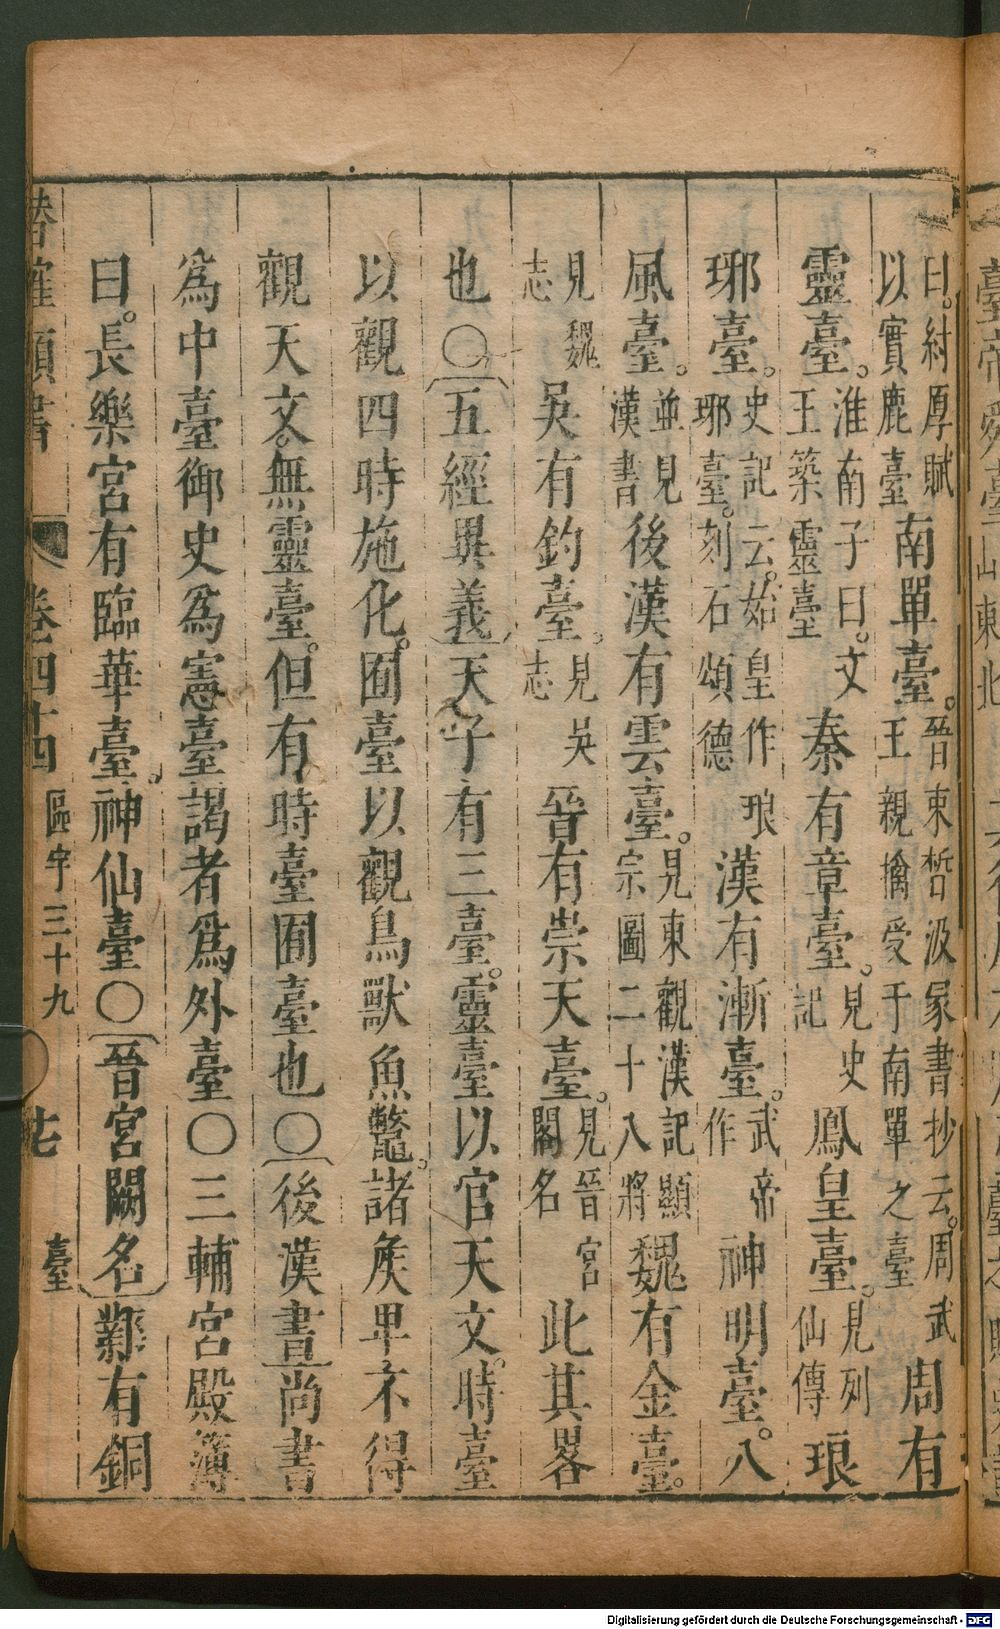 曰。紂厚賦以實鹿臺南單臺。晉束皙汲冢書抄云。周武王親擒受于南單之臺周有
靈臺。淮南子曰。文王築靈臺秦有章臺。見史記鳳皇臺。見列仙傳琅
琊臺。史記云。始皇作琅琊臺。刻石頌德漢有漸臺。武帝作神明臺。八
風臺。並見漢書後漢有雲臺。見東觀漢記顯宗圖二十八將魏有金臺。
見魏志吳有釣臺。見吳志晉有崇天臺。見晉宮閣名此其畧
也〇五經異義天子有三臺。靈臺以官天文。時臺
以觀四時施化。囿臺以觀鳥獸魚鼈。諸侯卑不得
觀天文。無靈臺。但有時臺囿臺也〇後漢書尚書
為中臺御史為憲臺謁者為外臺〇三輔宮殿簿
曰。長樂宮有臨華臺。神仙臺〇晉宮闕名鄴有銅
卷四十四 區宇三十九 七 臺
Digitalisierung gefördert durch die Deutsche Forschungsgemeinschaft - DFG